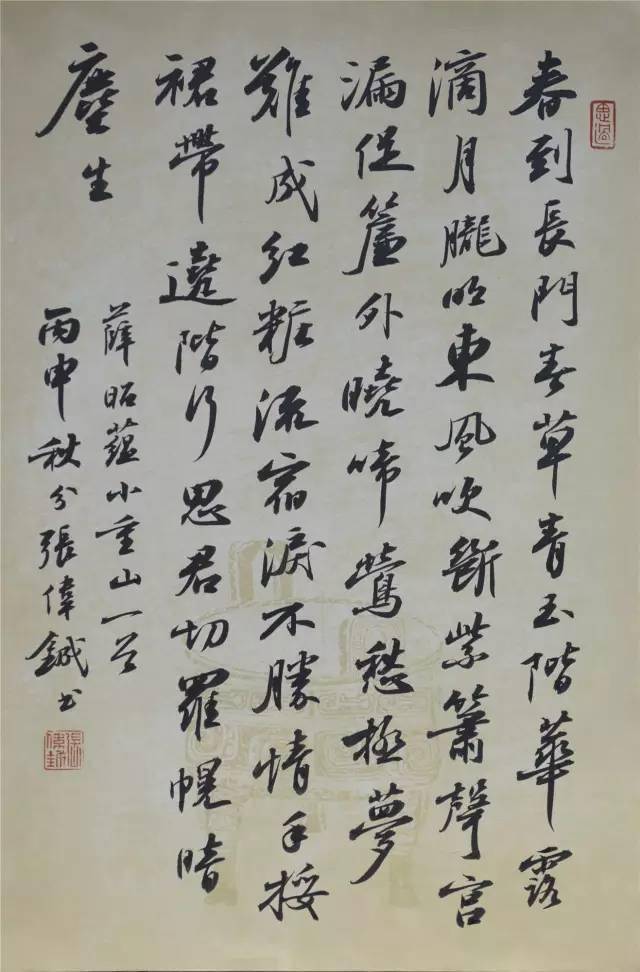 春到長門春草青玉階華露
滴月朧明東風吹斷紫簫聲宮
漏促簾外曉啼鶯愁極夢
難成紅粧流宿淚不勝情手挼
裙帶遶階行思君切羅幌暗
塵生
薛昭蘊小重山一首
丙申秋分張偉鋮書